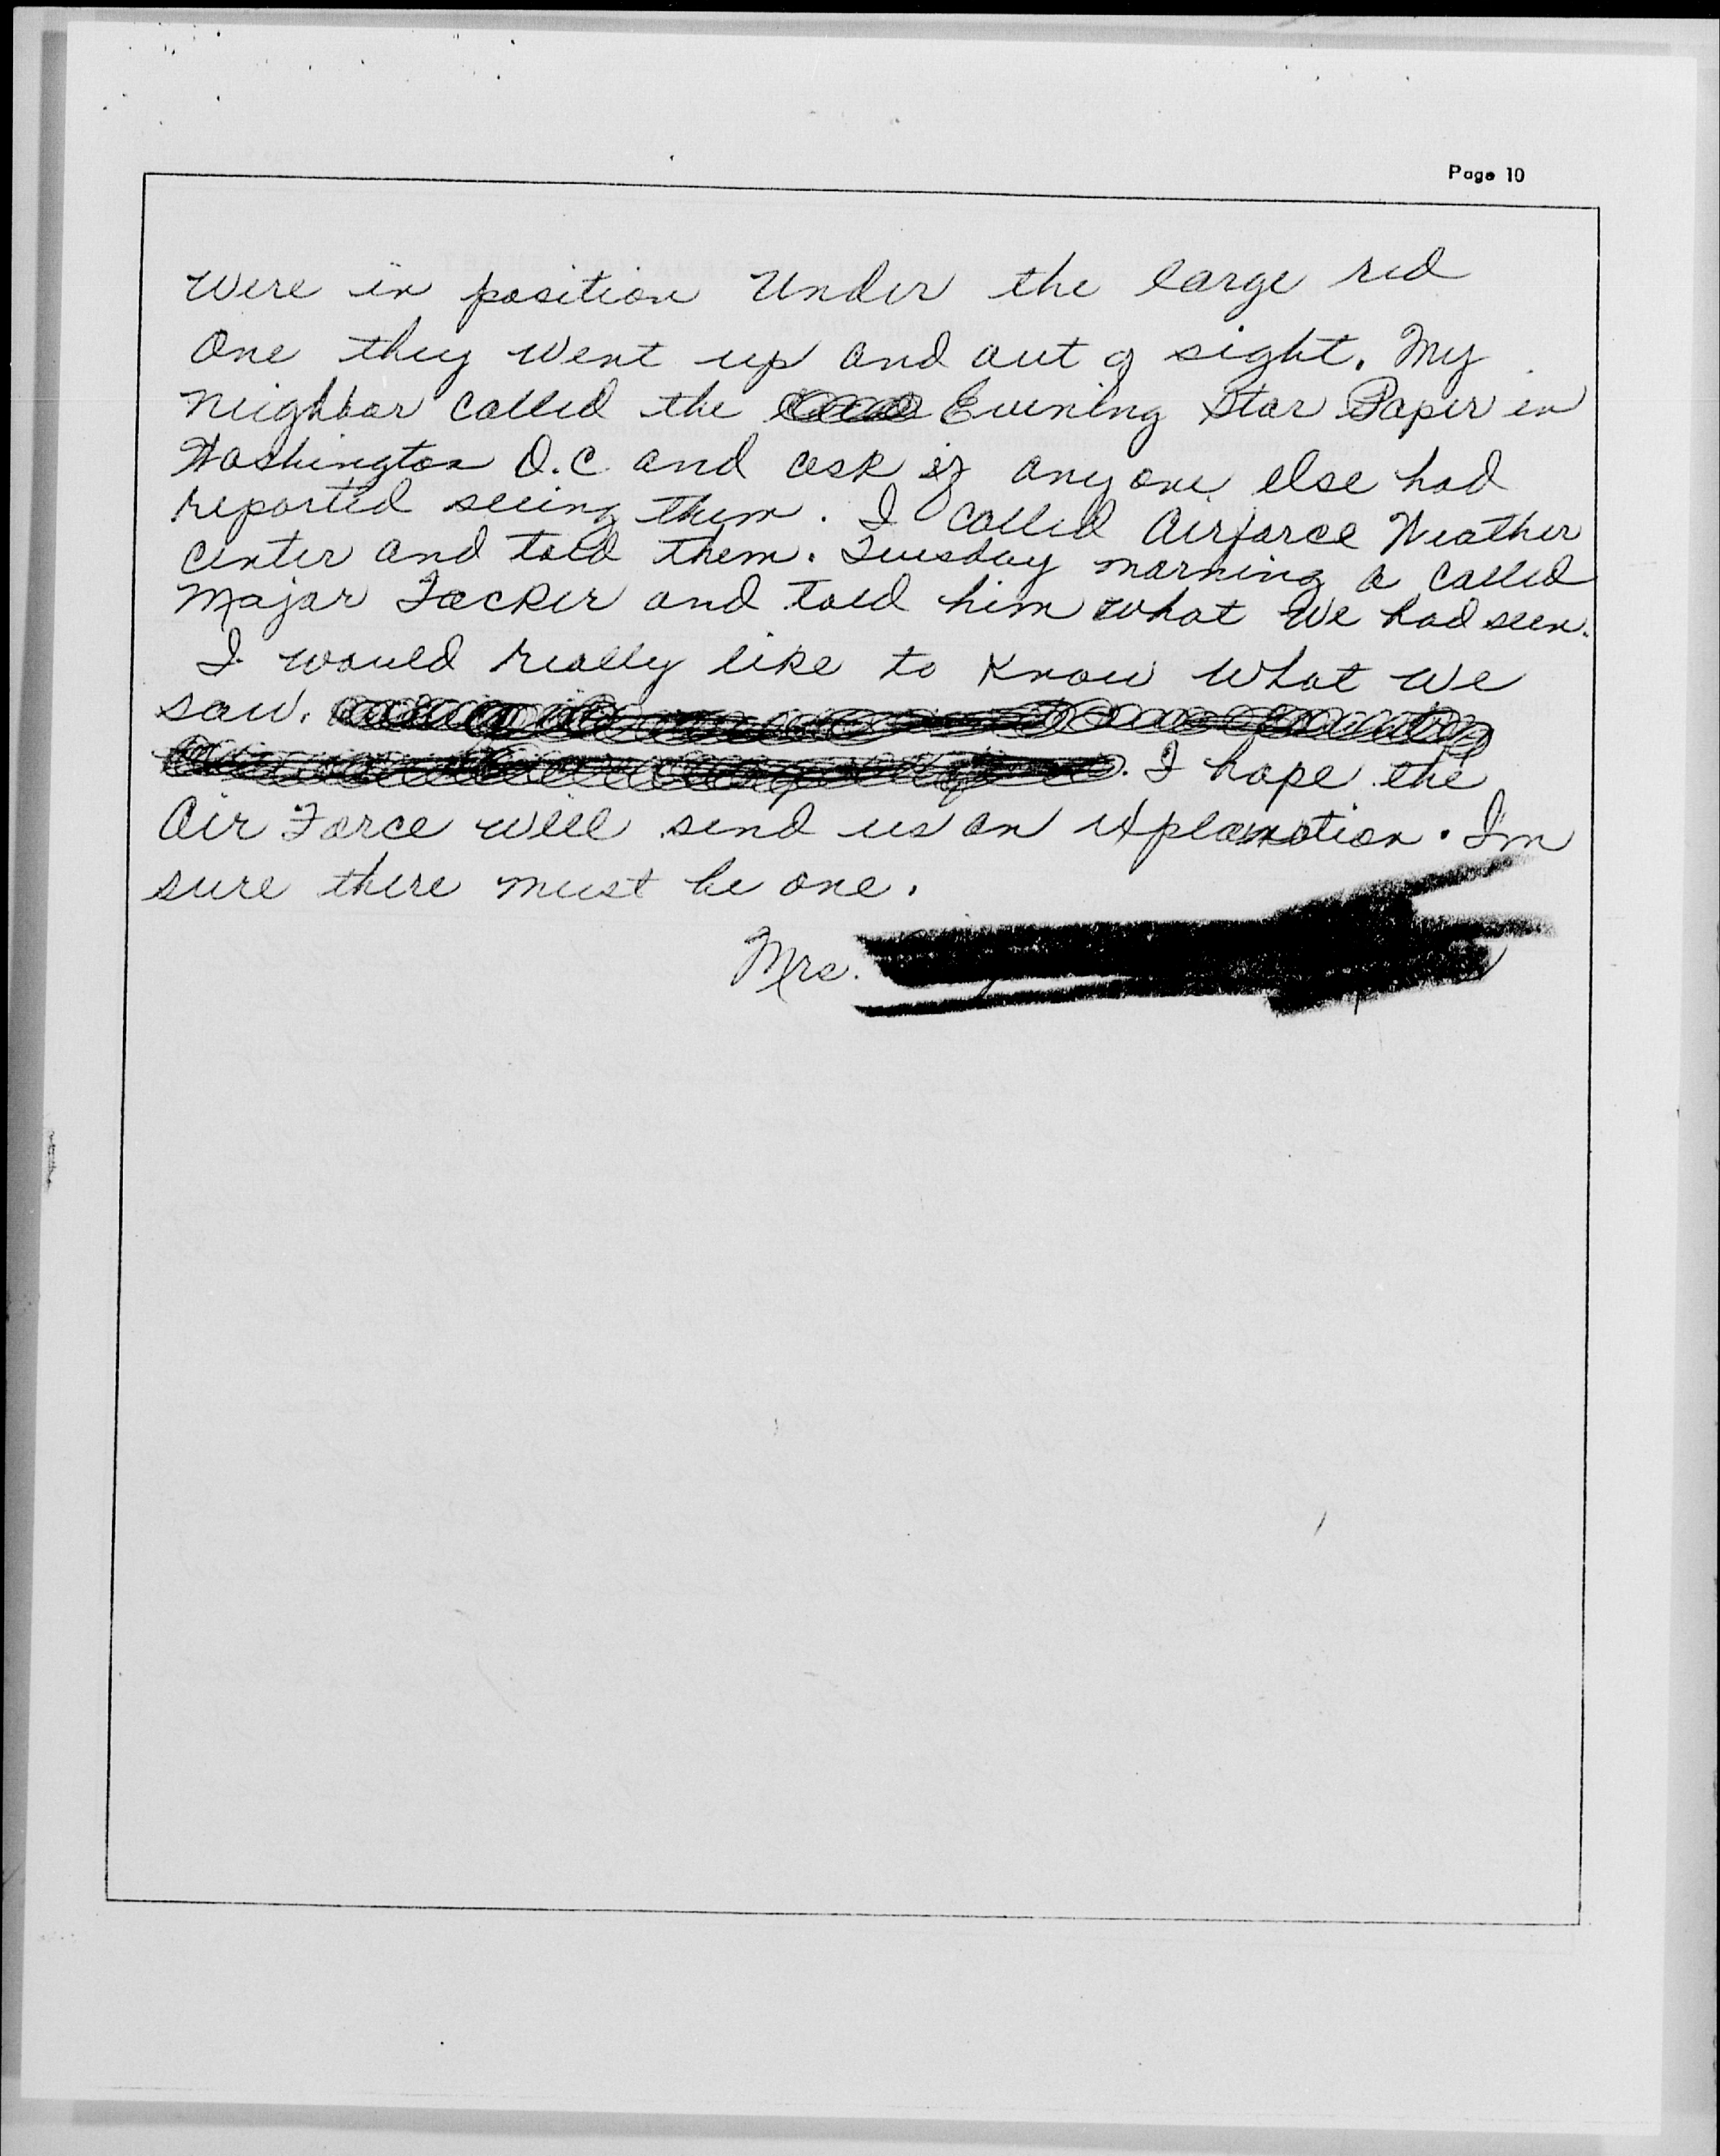 Page 10
Were in position Under the large red
One they went up and out of sight. My
neighbor called the Evening Star Paper in
Washington D.C. and ask if anyone else had
reported seeing them. I called Airforce Weather
center and told them. Tuesday morning a called
Major Tacker and told him what We had seen.
I would really like to know what we
saw. I hope the
Air Force will send us an explanation. I'm
sure there must be one.
Mrs.